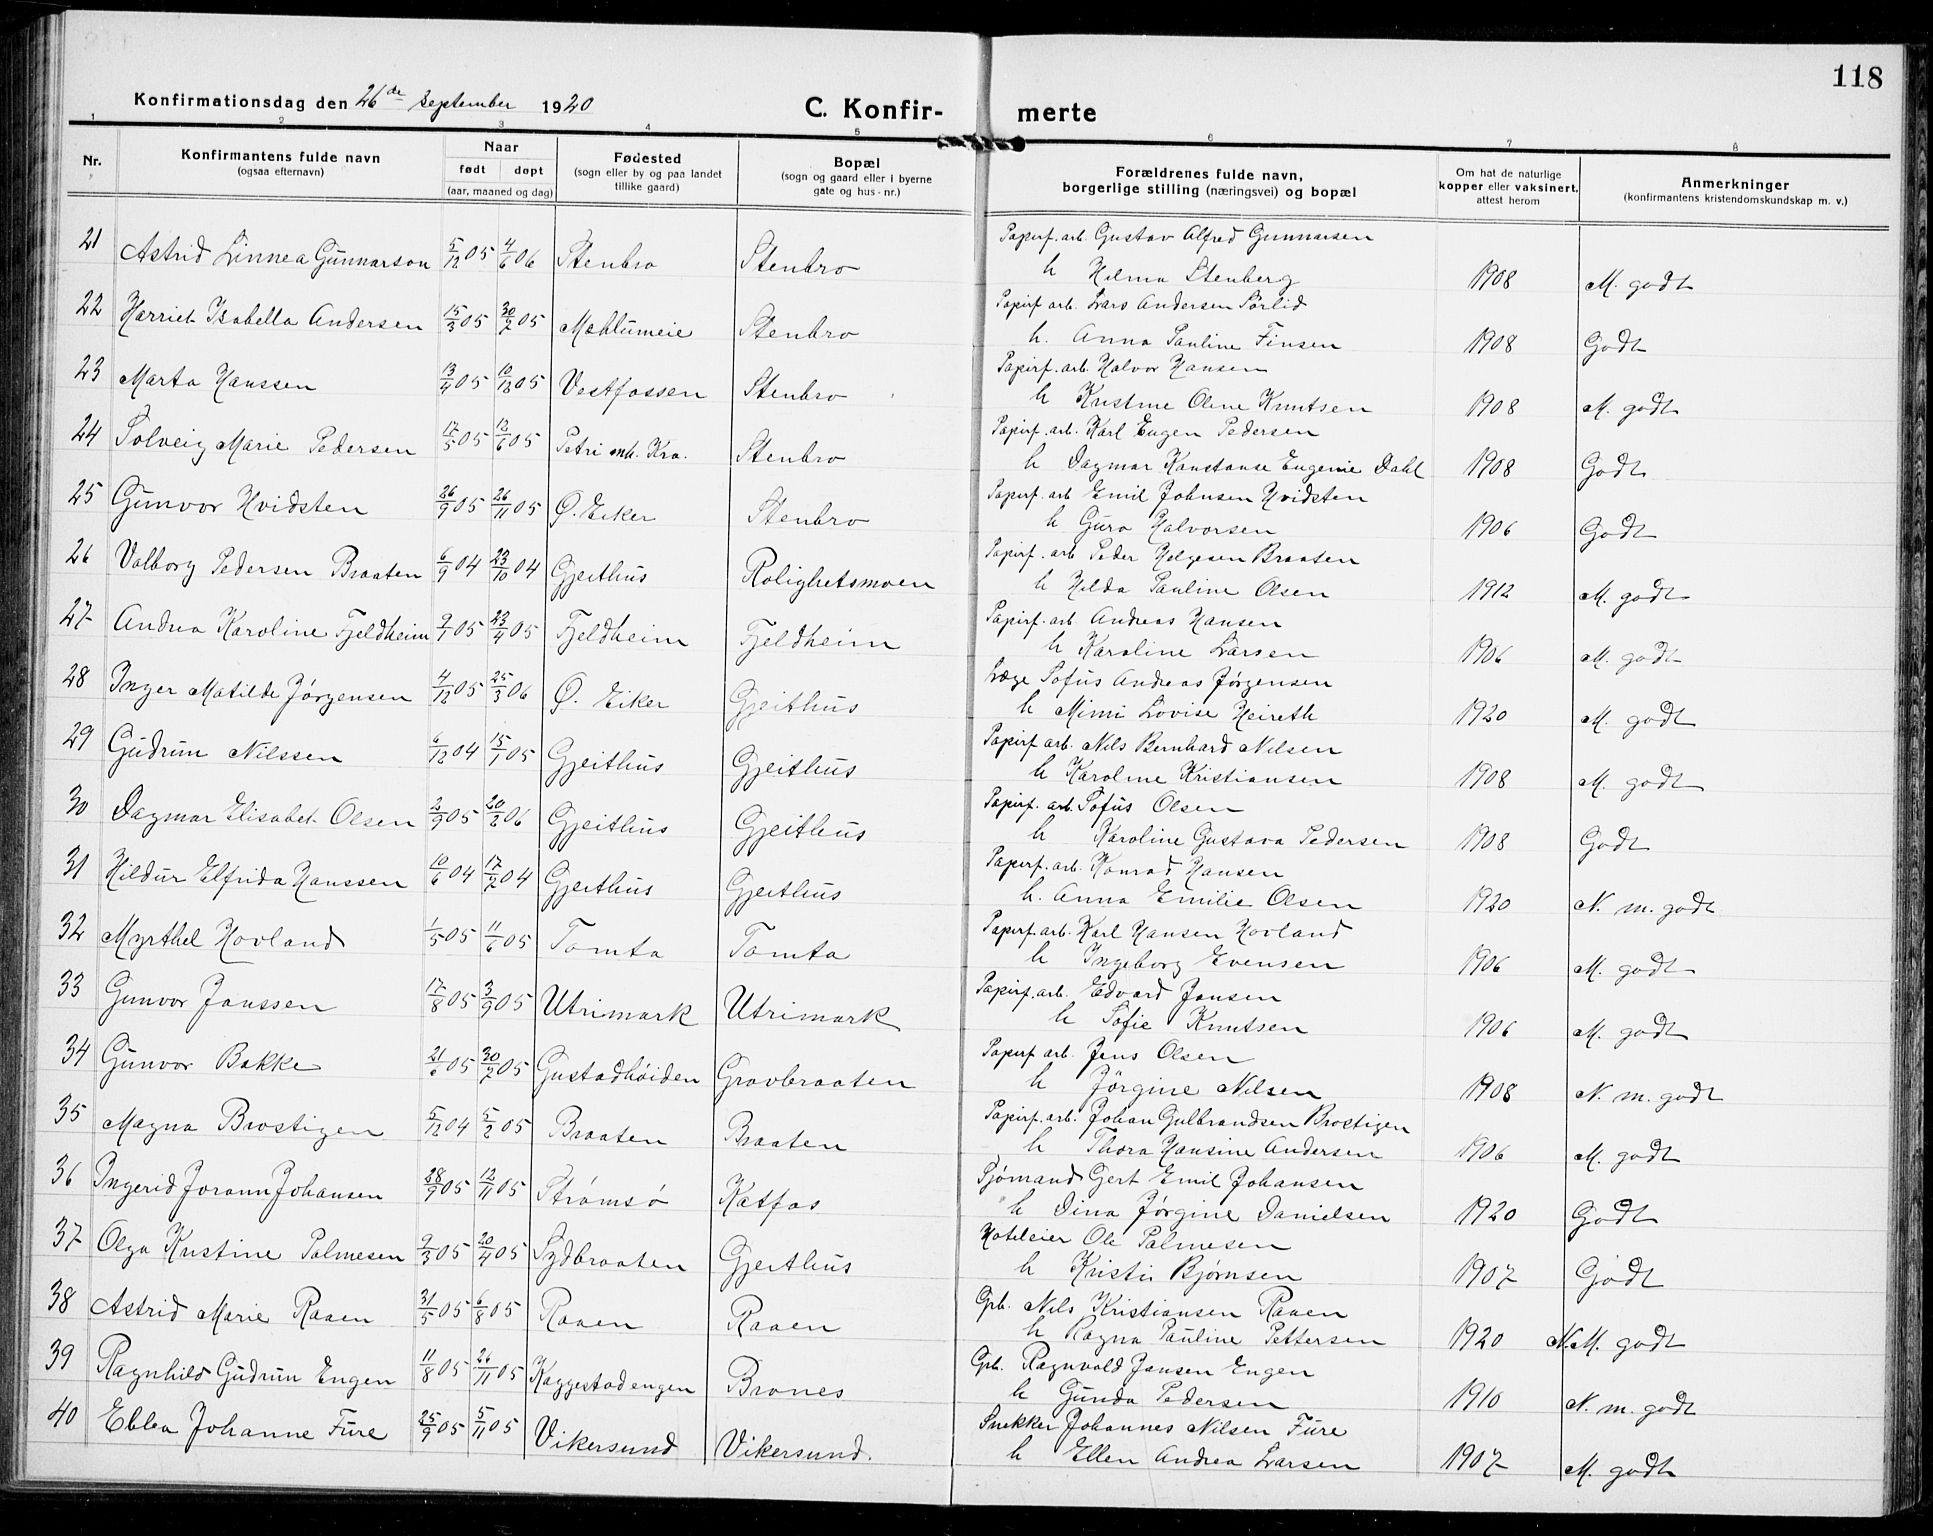 118
Konfirmationsdag den 26de september 1920
C. Konfir- merte
1 2 3 4 5 6 7 8
Nr.
Konfirmantens fulde navn
(ogsaa efternavn)
Naar
født døpt
(aar, maaned og dag)
Fødested
(sogn eller by og paa landet
tillike gaard)
Bopæl
(sogn og gaard eller i byerne
gate og hus-nr.)
Forældrenes fulde navn,
borgerlige stilling (næringsvei) og bopæl
Om hat de naturlige
kopper eller vaksinert,
attest herom
Anmerkninger
(konfirmantens kristendomskundskap m. v.)
21 Astrid Linnea Gunnarson 5/12 05 4/6 06 Stenbro Stenbro Papirf. arb. Gustav Alfred Gunnarsen
h Hilma Stenberg 1908 M. godt
22 Harriet Isabella Andersen 15/3 05 30/7 05 Møhlumeie Stenbro Papirf arb. Lars Andersen Sørlid
h. Anna Pauline Finsen 1908 Godt
23 Marta Hanssen 13/4 05 10/12 05 Vestfossen Stenbro Papirf. arb. Halvor Hansen
h Kristine Oline Knutsen 1908 M. godt
24 Solveig Marie Pedersen 17/5 05 12/6 05 Petri mh. Kra. Stenbro Papirf. arb. Karl Eugen Pedersen
h Dagmar Konstanse Eugenie Dahl 1908 Godt
25 Gunvor Hvidsten 26/9 05 26/11 05 Ø. Eiker Stenbro Papirf. arb Emil Johnsen Hvidsten
h Guro Halvorsen 1906 Godt
26 Valborg Pedersen Braaten 6/9 04 23/10 04 Gjeithus Rolighetsmoen Papirf. arb Peder Helgesen Braaten
h Hilda Pauline Olsen 1912 M. godt
27 Andrea Karoline Fjeldheim 9/1 05 23/4 05 Fjeldheim Fjeldheim Papirf. arb Andreas Hansen
h Karoline Larsen 1906 M. godt
28 Inger Matilde Jørgensen 4/12 05 25/3 06 Ø. Eiker Gjeithus Læge Sofus Andreas Jørgensen
h Mimi Lovise Heireth 1920 M. godt
29 Gudrun Nilssen 6/12 04 15/1 05 Gjeithus Gjeithus Papirf arb. Nils Bernhard Nilsen
h Karoline Kristiansen 1908 M. godt
30 Dagmar Elisabet Olsen 2/9 05 20/2 06 Gjeithus Gjeithus Papirf. arb. Sofus Olsen
h Karoline Gustava Pedersen 1908 Godt
31 Hildur Elfrida Hanssen 10/6 04 17/7 04 Gjeithus Gjeithus Papirf. arb. Konrad Hansen
h. Anna Emilie Olsen 1920 N. m. godt
32 Myrthel Hovland 1/5 05 11/6 05 Tomta Tomta Papirf. arb. Karl Hansen Hovland
h Ingeborg Evensen 1906 M. godt
33 Gunvor Janssen 17/8 05 3/9 05 Utrimark Utrimark Papirf. arb. Edvard Jansen
h Sofie Knutsen 1906 M. godt
34 Gunvor Bakke 21/6 05 30/7 05 Gustadhøiden Gravbraaten Papirf arb. Jens Olsen
h Jörgine Nilsen 1908 N. m. godt
35 Magna Brostigen 5/12 04 5/2 05 Braaten Braaten Papirf. arb. Johan Gulbrandsen Brostigen
h Thora Hansine Andersen 1906 M. godt
36 Ingerid Jorann Johansen 28/9 05 12/11 05 Strømsø Katfos Sjømand Gert Emil Johansen
h Dina Jørgine Danielsen 1920 Godt
37 Olga Kristine Palmesen 9/3 05 20/4 05 Sydbraaten Gjeithus Hoteleier Ole Palmesen
h Kristi Bjørnsen 1907 Godt
38 Astrid Marie Raaen 31/5 05 6/8 05 Raaen Raaen Gpb. Nils Kristiansen Raaen
h Ragna Pauline Pettersen 1920 N. M. godt
39 Ragnhild Gudrun Engen 11/8 05 26/11 05 Kaggestadengen Brones Gpb. Ragnvald Jansen Engen
h Gunda Pedersen 1910 N. m. godt
40 Ebba Johanne Fure 25/9 05 5/11 05 Vikersund Vikersund. Snekker Johannes Nilsen Fure
h Ellen Andrea Larsen 1907 M. godt